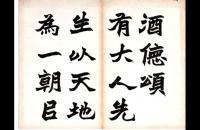 酒德頌
有大人先
生以天地
為一朝日